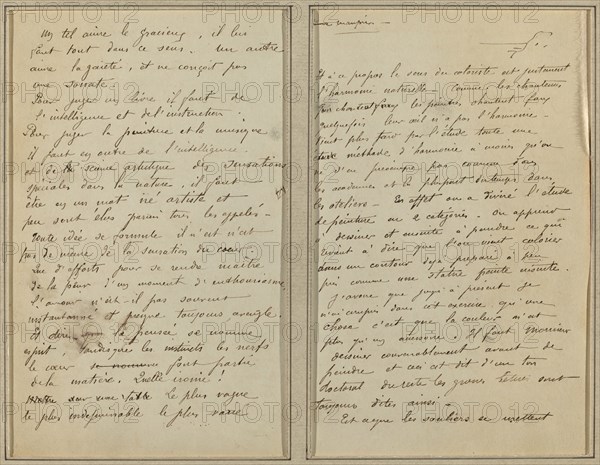 Un tel aime le gracieux, il lui
faut tout dans ce sens. Un autre
aime la gaieté, et ne conçoit pas
une sonate.
Pour juger un livre il faut de
l'intelligence et de l'instruction.
Pour juger la peinture et la musique
il faut en outre de l'intelligence
et de la science artistique des sensations
spéciales dans la nature, il faut
être en un mot né artiste et
peu sont élus parmi tous les appelés.
Toute idée se formule il n'est n'at
pas de même de la sensation du cœur
que d'efforts pour se rendre maître
de la peur d'un moment d'enthousiasme
l'amour n'est il pas souvent
instantané et presque toujours aveugle.
Et dire que la pensée se nomme
esprit, tandis que les instincts les nerfs
le cœur se nomme font partie
de la matière. Quelle ironie!
Le plus vague
le plus indéfinissable le plus varié
la manière
Et à ce propos le sens du coloriste est justement
l'harmonie naturelle. Comme les chanteurs
les peintres chantent faux
quelquefois leur œil n'a pas l'harmonie.
Vient plus tard par l'étude toute une
méthode d'harmonie à moins qu'on
ne s'en préoccupe pas comme dans
les académies et la plupart du temps dans
les ateliers. En effet on a divisé l'étude
de peinture en 2 catégories. On apprend
à dessiner et ensuite à peindre ce qui
revient à dire que l'on vient colorier
dans un contour déjà préparé à peu
près comme une statue peinte ensuite.
J'avoue que jusqu'à présent je
n'ai compris dans cet exercice qu'une
chose c'est que la couleur n'est
plus qu'un accessoire. Il faut Monsieur
dessiner convenablement avant de
peindre et ceci est dit d'un ton
doctoral du reste les grosses bêtises sont
toujours dites ainsi.
Est ce que les souliers se mettent